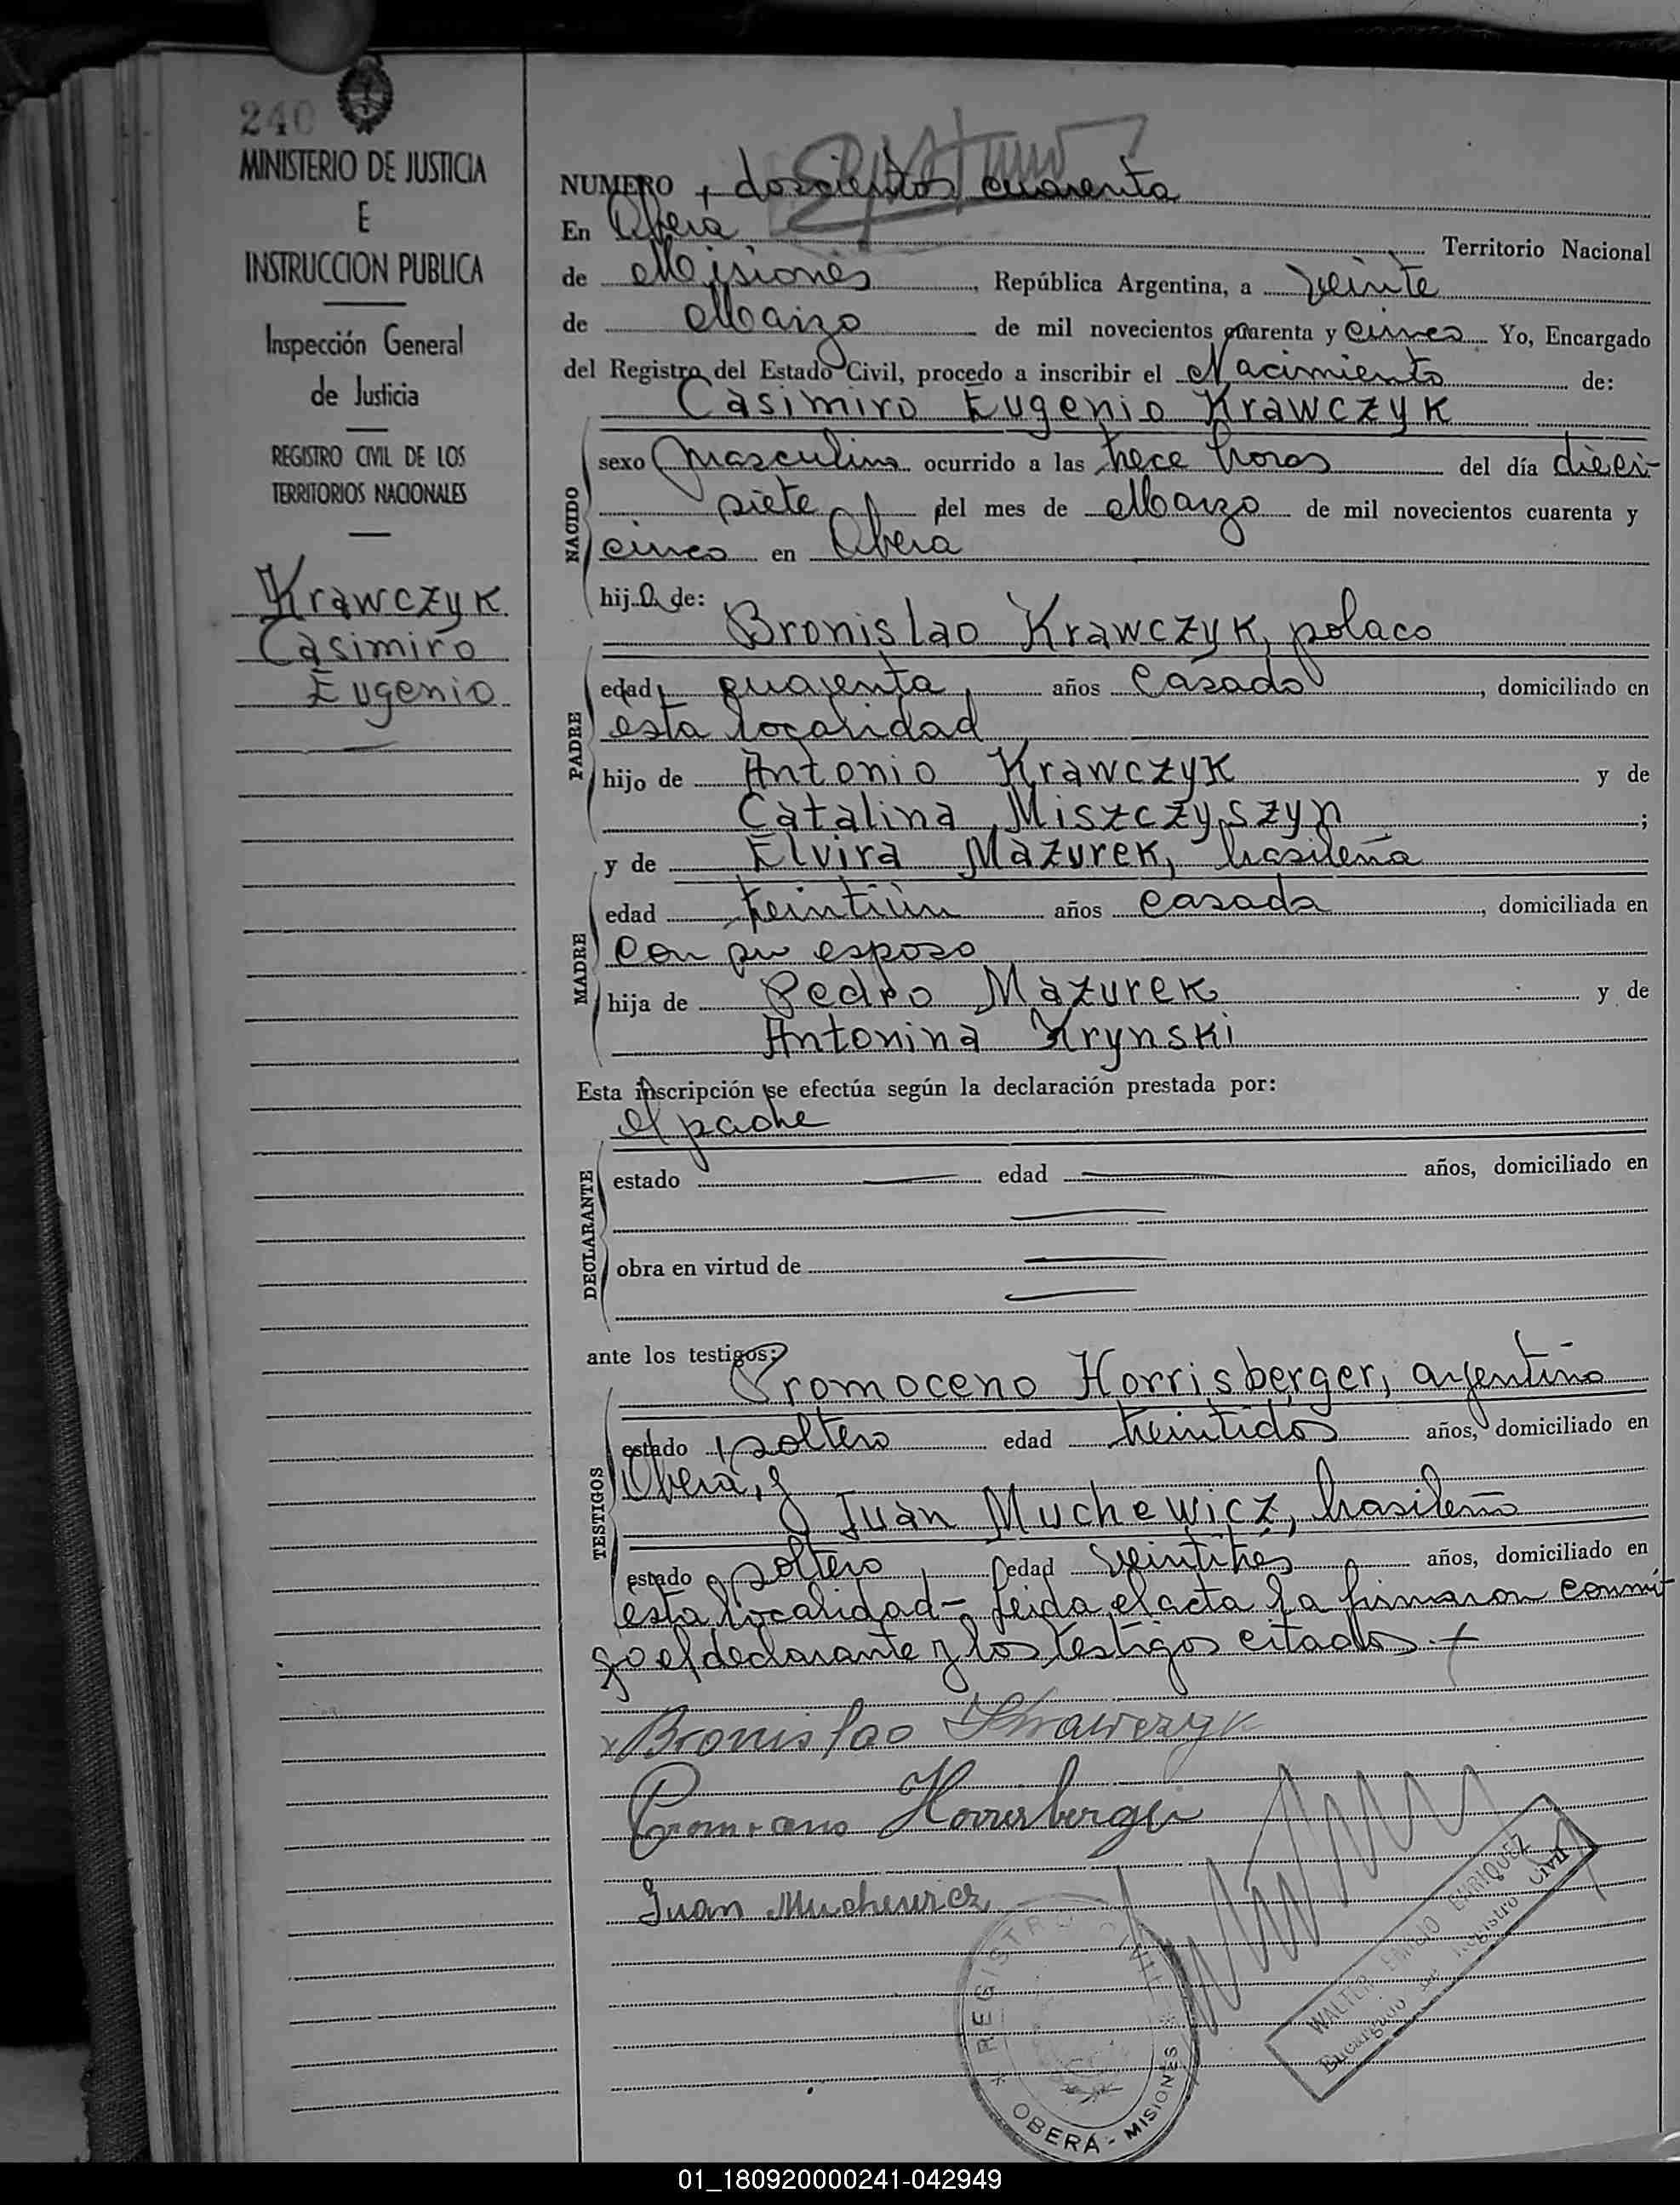 240
MINISTERIO DE JUSTICIA
E
INSTRUCCION PUBLICA
Inspección General
de Justicia
REGISTRO CIVIL DE LOS
TERRITORIOS NACIONALES
Krawczyk
Casimiro
Eugenio
NUMERO doscientos cuarenta
En Oberá Territorio Nacional
de Misiones, República Argentina, a veinte
de Marzo de mil novecientos cuarenta y cinco Yo, Encargado
del Registro del Estado Civil, procedo a inscribir el Nacimiento de:
Casimiro Eugenio Krawczyk
NACIDO
sexo masculino ocurrido a las trece horas del día dieci-
siete del mes de Marzo de mil novecientos cuarenta y
cinco en Oberá
hijo de:
Bronislao Krawczyk, polaco
PADRE
edad cuarenta años casado, domiciliado en
esta localidad
hijo de Antonio Krawczyk y de
Catalina Miszczyszyn;
y de Elvira Mazurek, brasileña
MADRE
edad treintiún años casada, domiciliada en
con su esposo
hija de Pedro Mazurek y de
Antonina Krynski
Esta inscripción se efectúa según la declaración prestada por:
el padre
DECLARANTE
estado edad años, domiciliado en
obra en virtud de
ante los testigos:
Promoceno Horrisberger, argentino
TESTIGOS
estado soltero edad treintidos años, domiciliado en
Oberá, y
Juan Muchewicz, brasileño
estado soltero, edad veintitres años, domiciliado en
esta localidad- leida el acta la firmaron conmi
go el declarante y los testigos citados.
Bronislao Krawczyk
Horrisberger
Juan Muchewicz
REGISTRO CIVIL
OBERÁ - MISIONES
WALTER EMILIO ENRIQUEZ
Encargado de Registro Civil
01_180920000241-042949